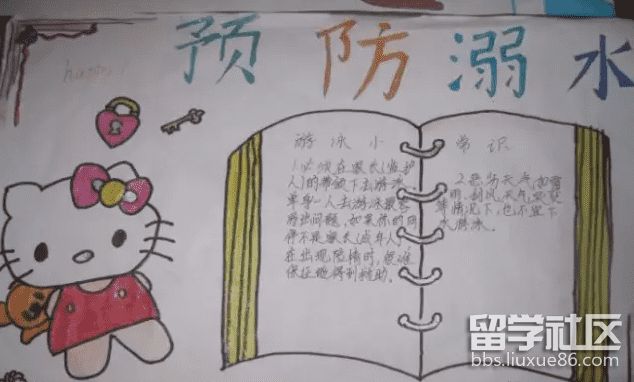 预防溺水
happy
游泳小常识
1.必须在家长(监护
人)的带领下去游泳
单身一人去游泳最容
易出问题,如果你的同
伴不是家长(成年人)
在出现险情时,很难
保证地得到救助。
2.恶劣天气,如雷
雨、刮风、天气突变
等情况下,也不宜下
水游泳。
留学社区
bbs.liuxue86.com